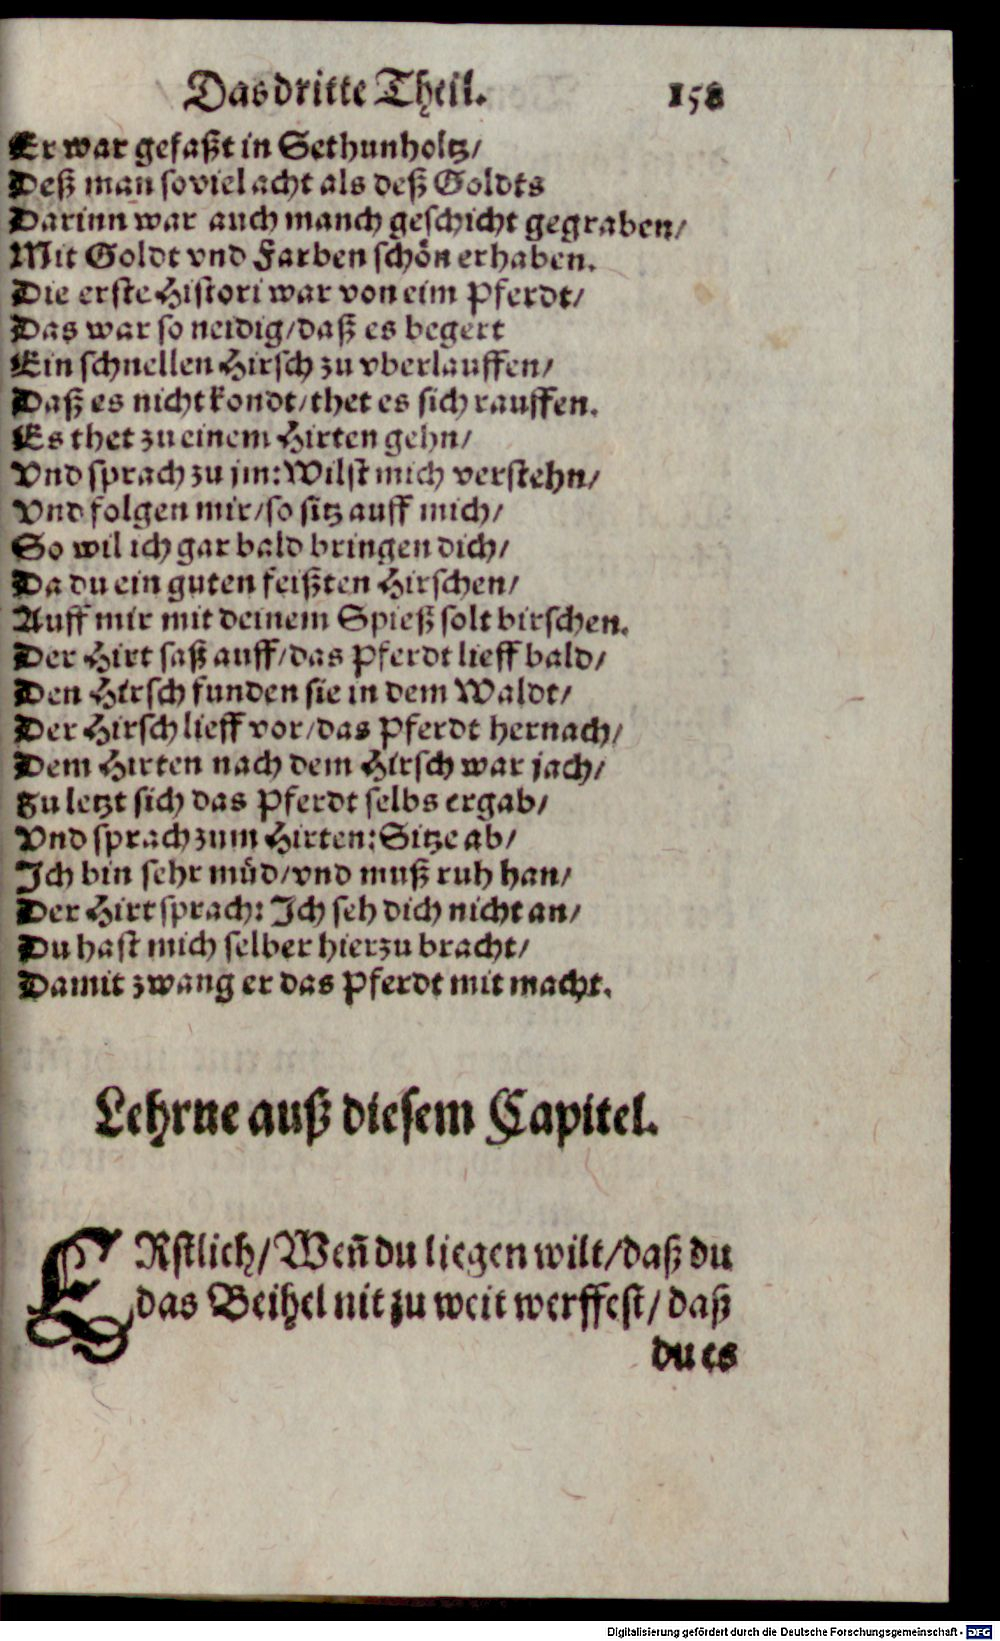 Das dritte Theil. 158
Er war gefaßt in Sethunholtz/
Deß man soviel acht als deß Goldts
Darinn war auch manch geschicht gegraben/
Mit Goldt vnd Farben schön erhaben.
Die erste Histori war von eim Pferdt/
Das war so neidig/daß es begert
Ein schnellen Hirsch zu vberlauffen/
Daß es nicht kondt/thet es sich rauffen.
Es thet zu einem Hirten gehn/
Vnd sprach zu jm: Wilst mich verstehn/
Vnd folgen mir/so sitz auff mich/
So wil ich gar bald bringen dich/
Da du ein guten feißten Hirschen/
Auff mir mit deinem Spieß solt birschen.
Der Hirt saß auff/das Pferdt lieff bald/
Den Hirsch funden sie in dem Waldt/
Der Hirsch lieff vor/das Pferdt hernach/
Dem Hirten nach dem Hirsch war jach/
Zu letzt sich das Pferdt selbs ergab/
Vnd sprach zum Hirten: Sitze ab/
Ich bin sehr müd/vnd muß ruh han/
Der Hirt sprach: Ich seh dich nicht an/
Du hast mich selber hierzu bracht/
Damit zwang er das Pferdt mit macht.
Lehrne auß diesem Capitel.
ERstlich/Weñ du liegen wilt/daß du
das Beihel nit zu weit werffest/daß
du es
Digitalisierung gefördert durch die Deutsche Forschungsgemeinschaft - DFG